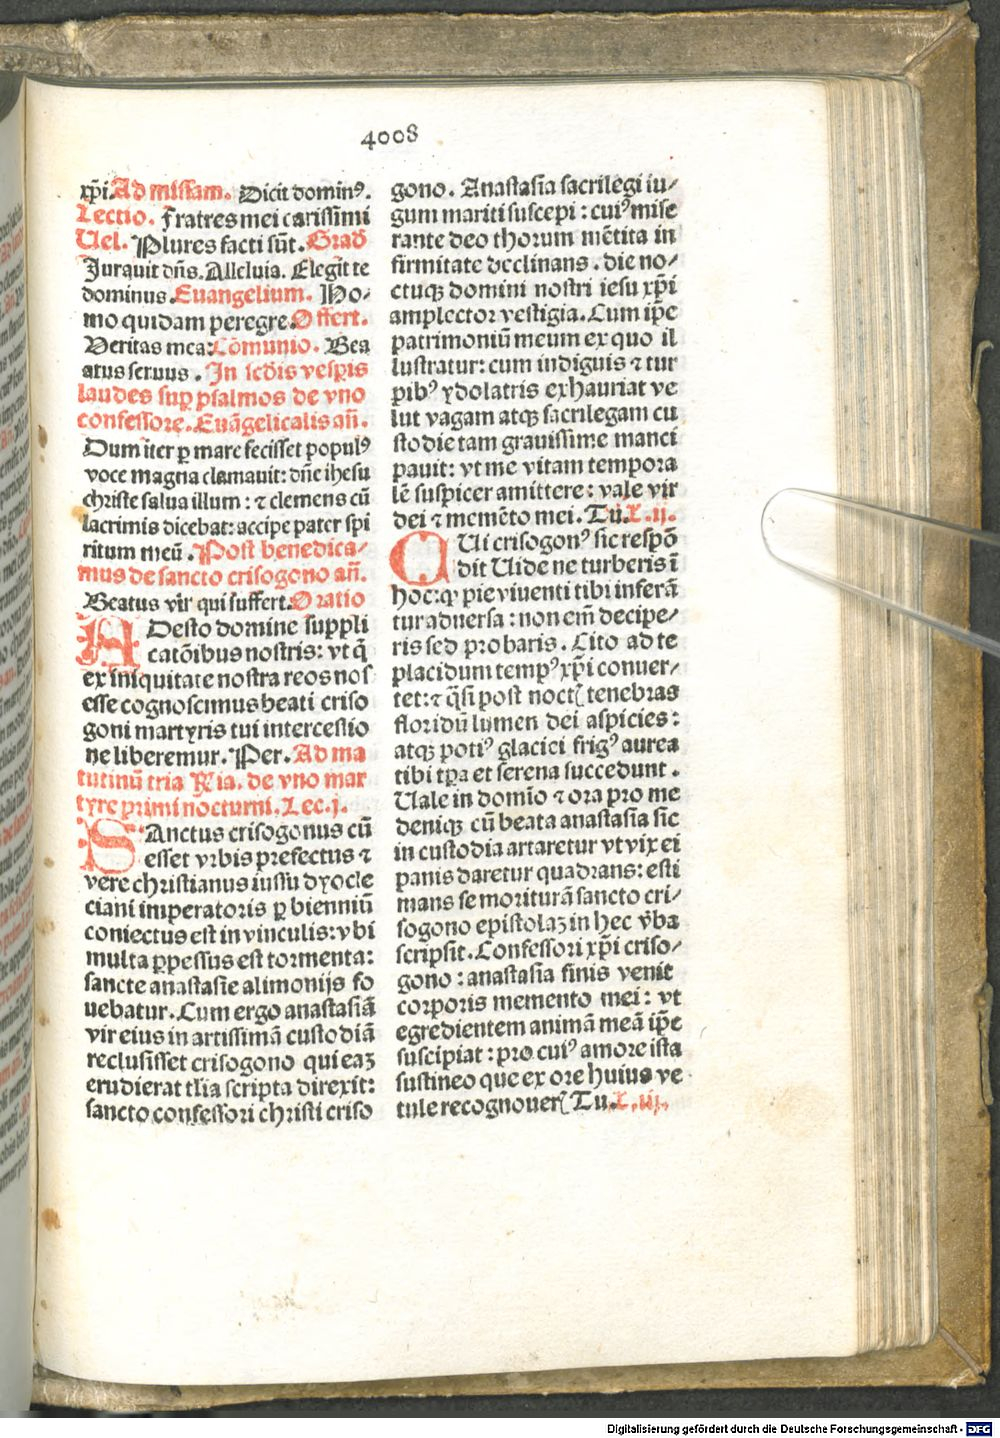 4008
xp̄i.Ad missam. Dicit domin⁹.
Lectio. Fratres mei carissimi
Uel. Plures facti sūt. Grad̄
Jurauit dn̄s. Alleluia. Elegit te
dominus. Euangelium. Ho⸗
mo quidam peregre. Offert.
Veritas mea: Cōmunio. Bea
atus seruus. In scd̄is vesp̄is
laudes sup̱ psalmos de vno
confessore. Euāgelicalis an̄.
Dum iter ꝑ mare fecisset popul⁹
voce magna clamauit: dn̄e ihesu
christe salua illum: ⁊ clemens cū
lacrimis dicebat: accipe pater spi
ritum meū. Post benedica⸗
mus de sancto crisogono an̄.
Beatus vir qui suffert. Oratio
ADesto domine suppli
catōibus nostris: vt q̄
ex iniquitate nostra reos nos
esse cognoscimus beati criso
goni martyris tui intercessio
ne liberemur. Per. Ad ma
tutinū tria R̄ia. de vno mar
tyre primi nocturni. Lec. j.
SAnctus crisogonus cū
esset vrbis prefectus ⁊
vere christianus iussu dyocle
ciani imperatoris ꝑ bienniū
coniectus est in vinculis: vbi
multa ꝑpessus est tormenta:
sancte anastasie alimonijs fo
uebatur. Cum ergo anastasiā
vir eius in artissimā custodiā
reclusisset crisogono qui eaꝫ
erudierat tl̄ia scripta direxit:
sancto confessori christi criso
gono. Anastasia sacrilegi iu⸗
gum mariti suscepi: cui⁹ mise
rante deo thorum mētita in
firmitate declinans. die no⸗
ctuqꝫ domini nostri iesu xp̄i
amplector vestigia. Cum ip̄e
patrimoniū meum ex quo il
lustratur: cum indiguis ⁊ tur
pib⁹ ydolatris exhauriat ve
lut vagam atqꝫ sacrilegam cu
stodie tam grauissime manci
pauit: vt me vitam tempora
lē suspicer amittere: vale vir
dei ⁊ memēto mei. Tu. L. ij.
CUi crisogon⁹ sic respō
dit Uide ne turberis ī
hoc: ꝙ pie viuenti tibi inferā
tur aduersa: non em̄ decipe⸗
ris sed probaris. Cito ad te
placidum temp⁹ xp̄i conuer⸗
tet: ⁊ q̄si post noctꝭ tenebras
floridū lumen dei aspicies:
atqꝫ poti⁹ glaciei frig⁹ aurea
tibi tp̄a et serena succedunt.
Uale in domīo ⁊ ora pro me
deniqꝫ cū beata anastasia sic
in custodia artaretur vt vix ei
panis daretur quadrans: esti
mans se moriturā sancto cri⸗
sogono epistolaꝫ in hec v̄ba
scripsit. Confessori xp̄i criso⸗
gono: anastasia finis venit
corporis memento mei: vt
egredientem animā meā ip̄e
suscipiat: pro cui⁹ amore ista
sustineo que ex ore huius ve
tule recognouerꝭ Tu. L. iij.
Digitalisierung gefördert durch die Deutsche Forschungsgemeinschaft - DFG